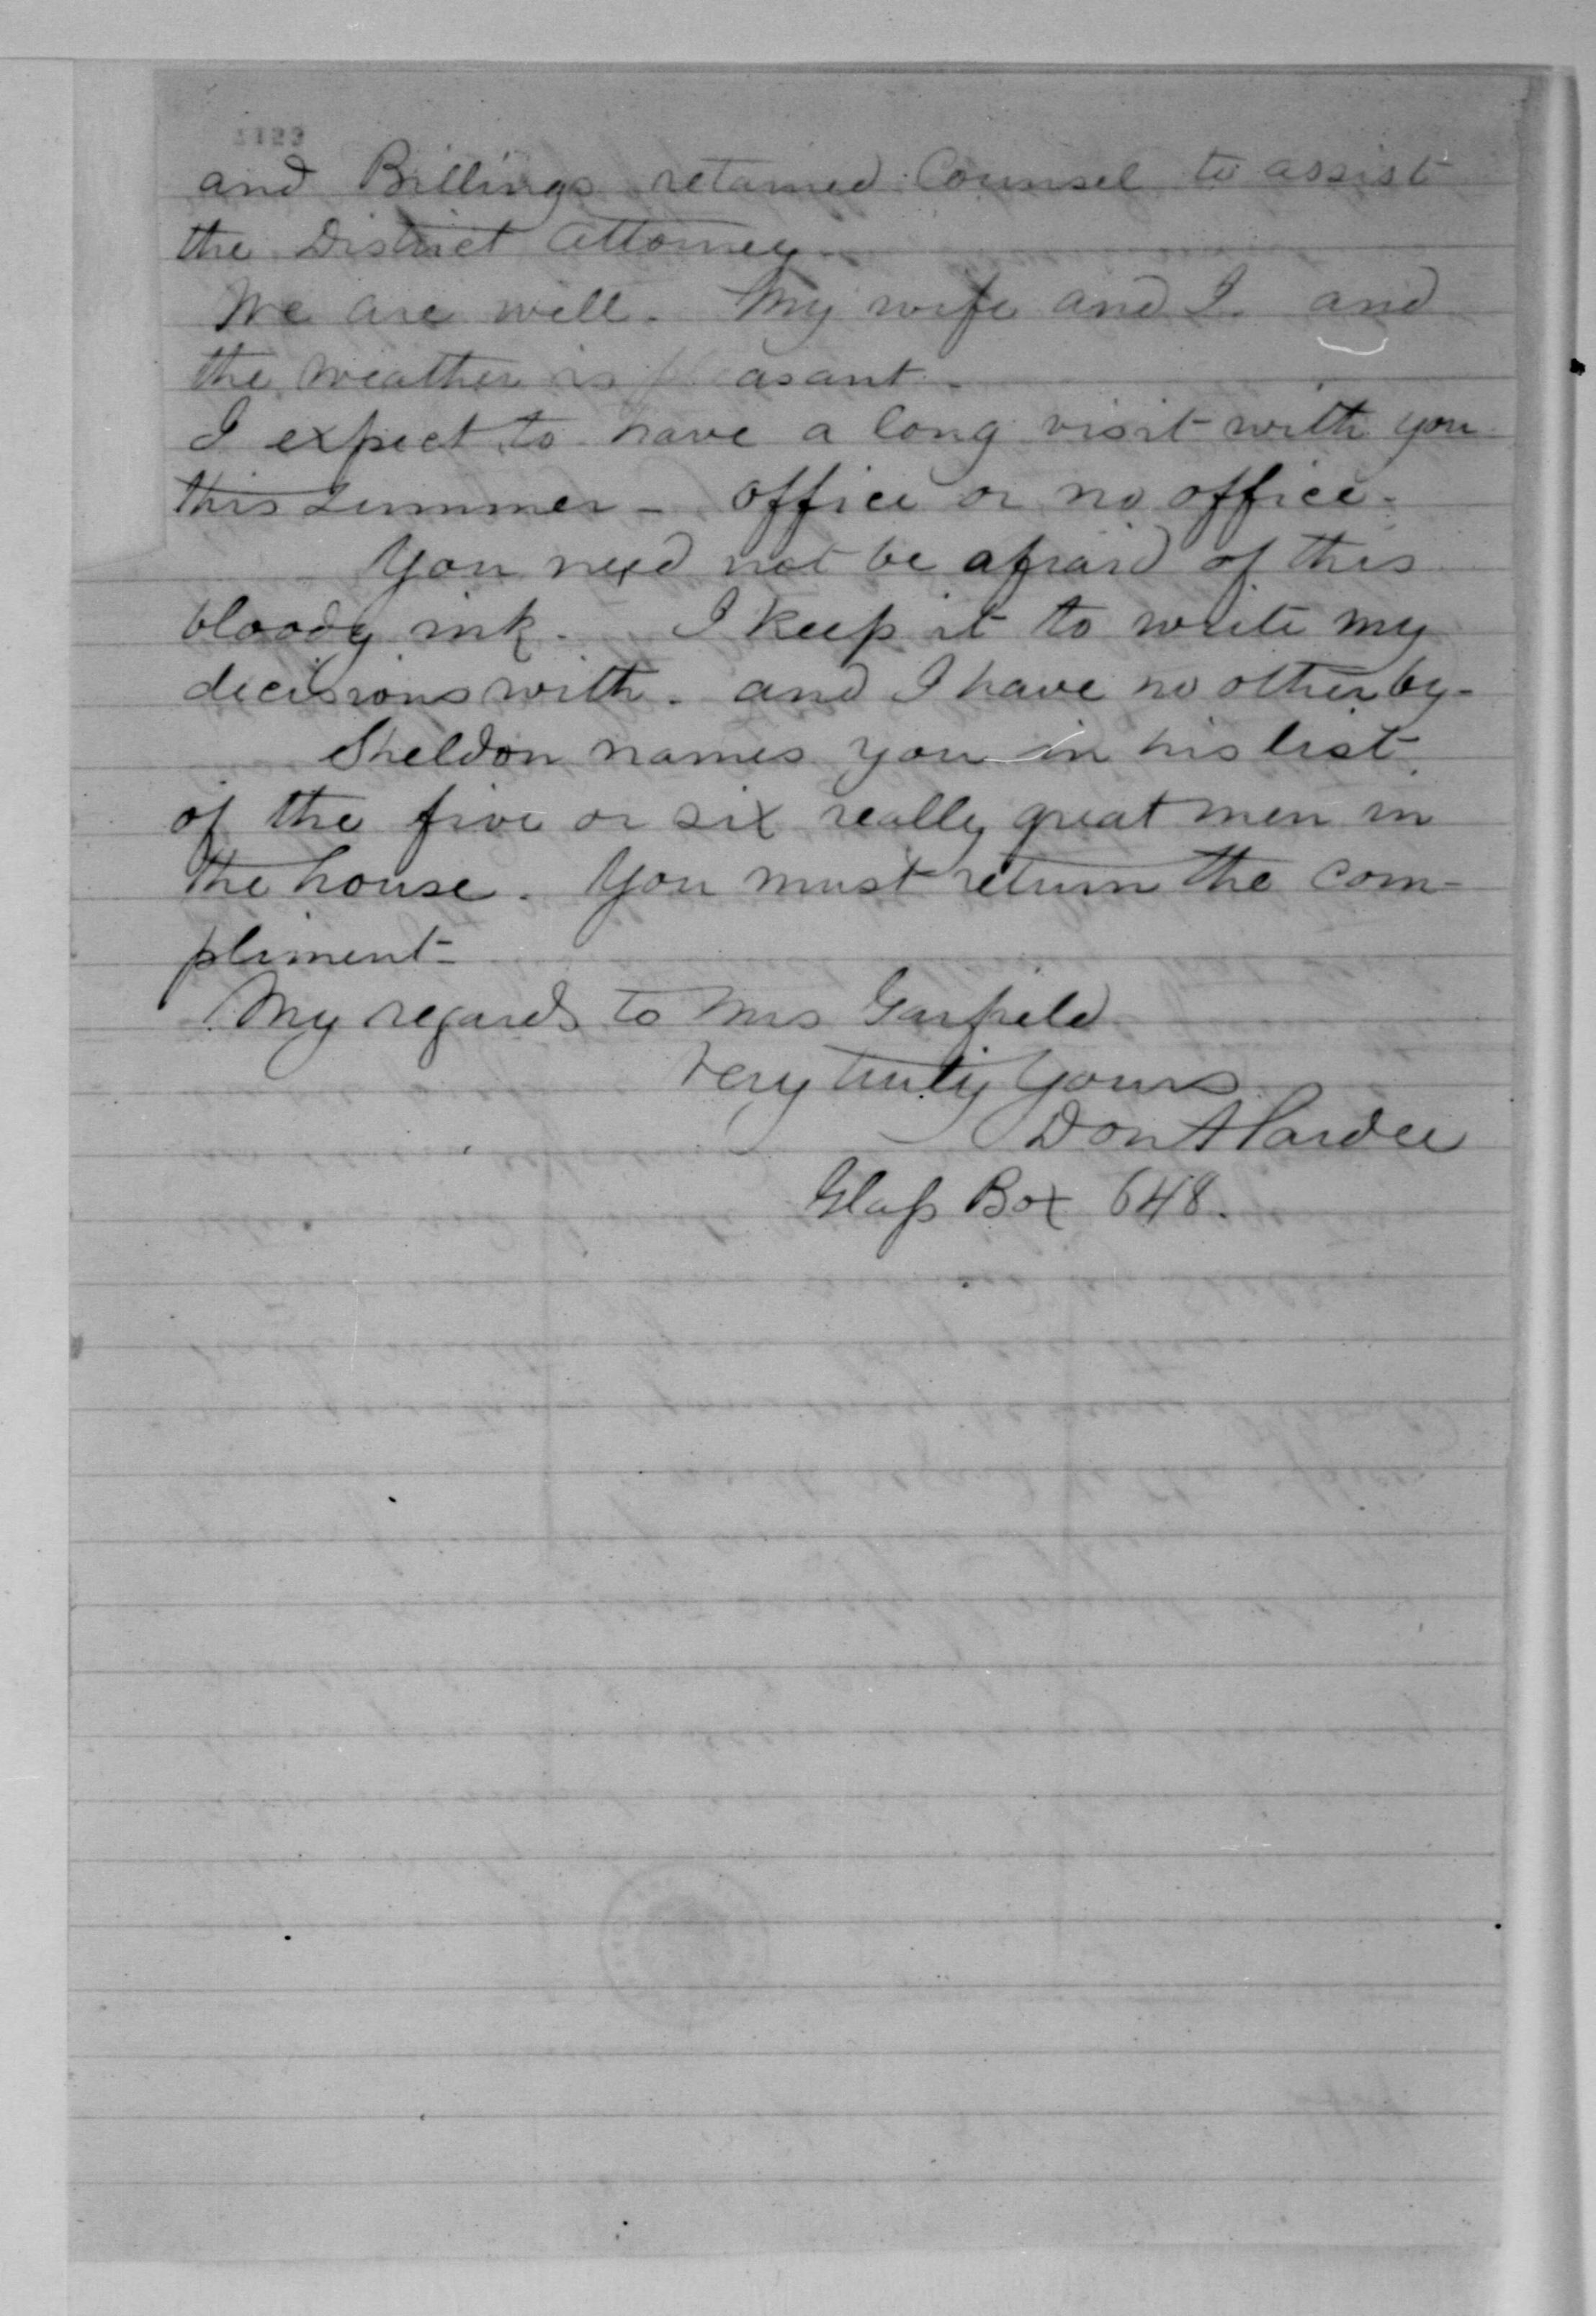 and Billings retained Counsel to assist
the District Attorney.
We are well. My wife and I. and
the weather is pleasant.
I expect to have a long visit with you
this summer - office or no office.
You need not be afraid of this
bloody ink. I keep it to write my
decisions with. and I have no other by-
Sheldon names you in his list
of the five or six really great men in
the house. You must return the com-
pliment-
My regards to Mrs Garfield
Very truly Yours
Don A Pardee
Glass Box 648.